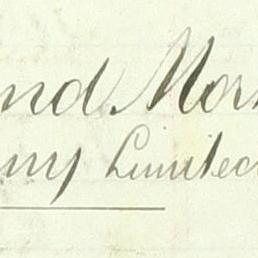 nd Mor
ny Limited